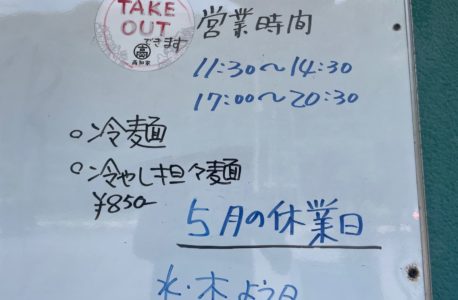 TAKE
OUT
できます
高知家
営業時間
11:30〜14:30
17:00〜20:30
○冷麺
○冷やし担々麺
¥850-
5月の休業日
水・木よう日